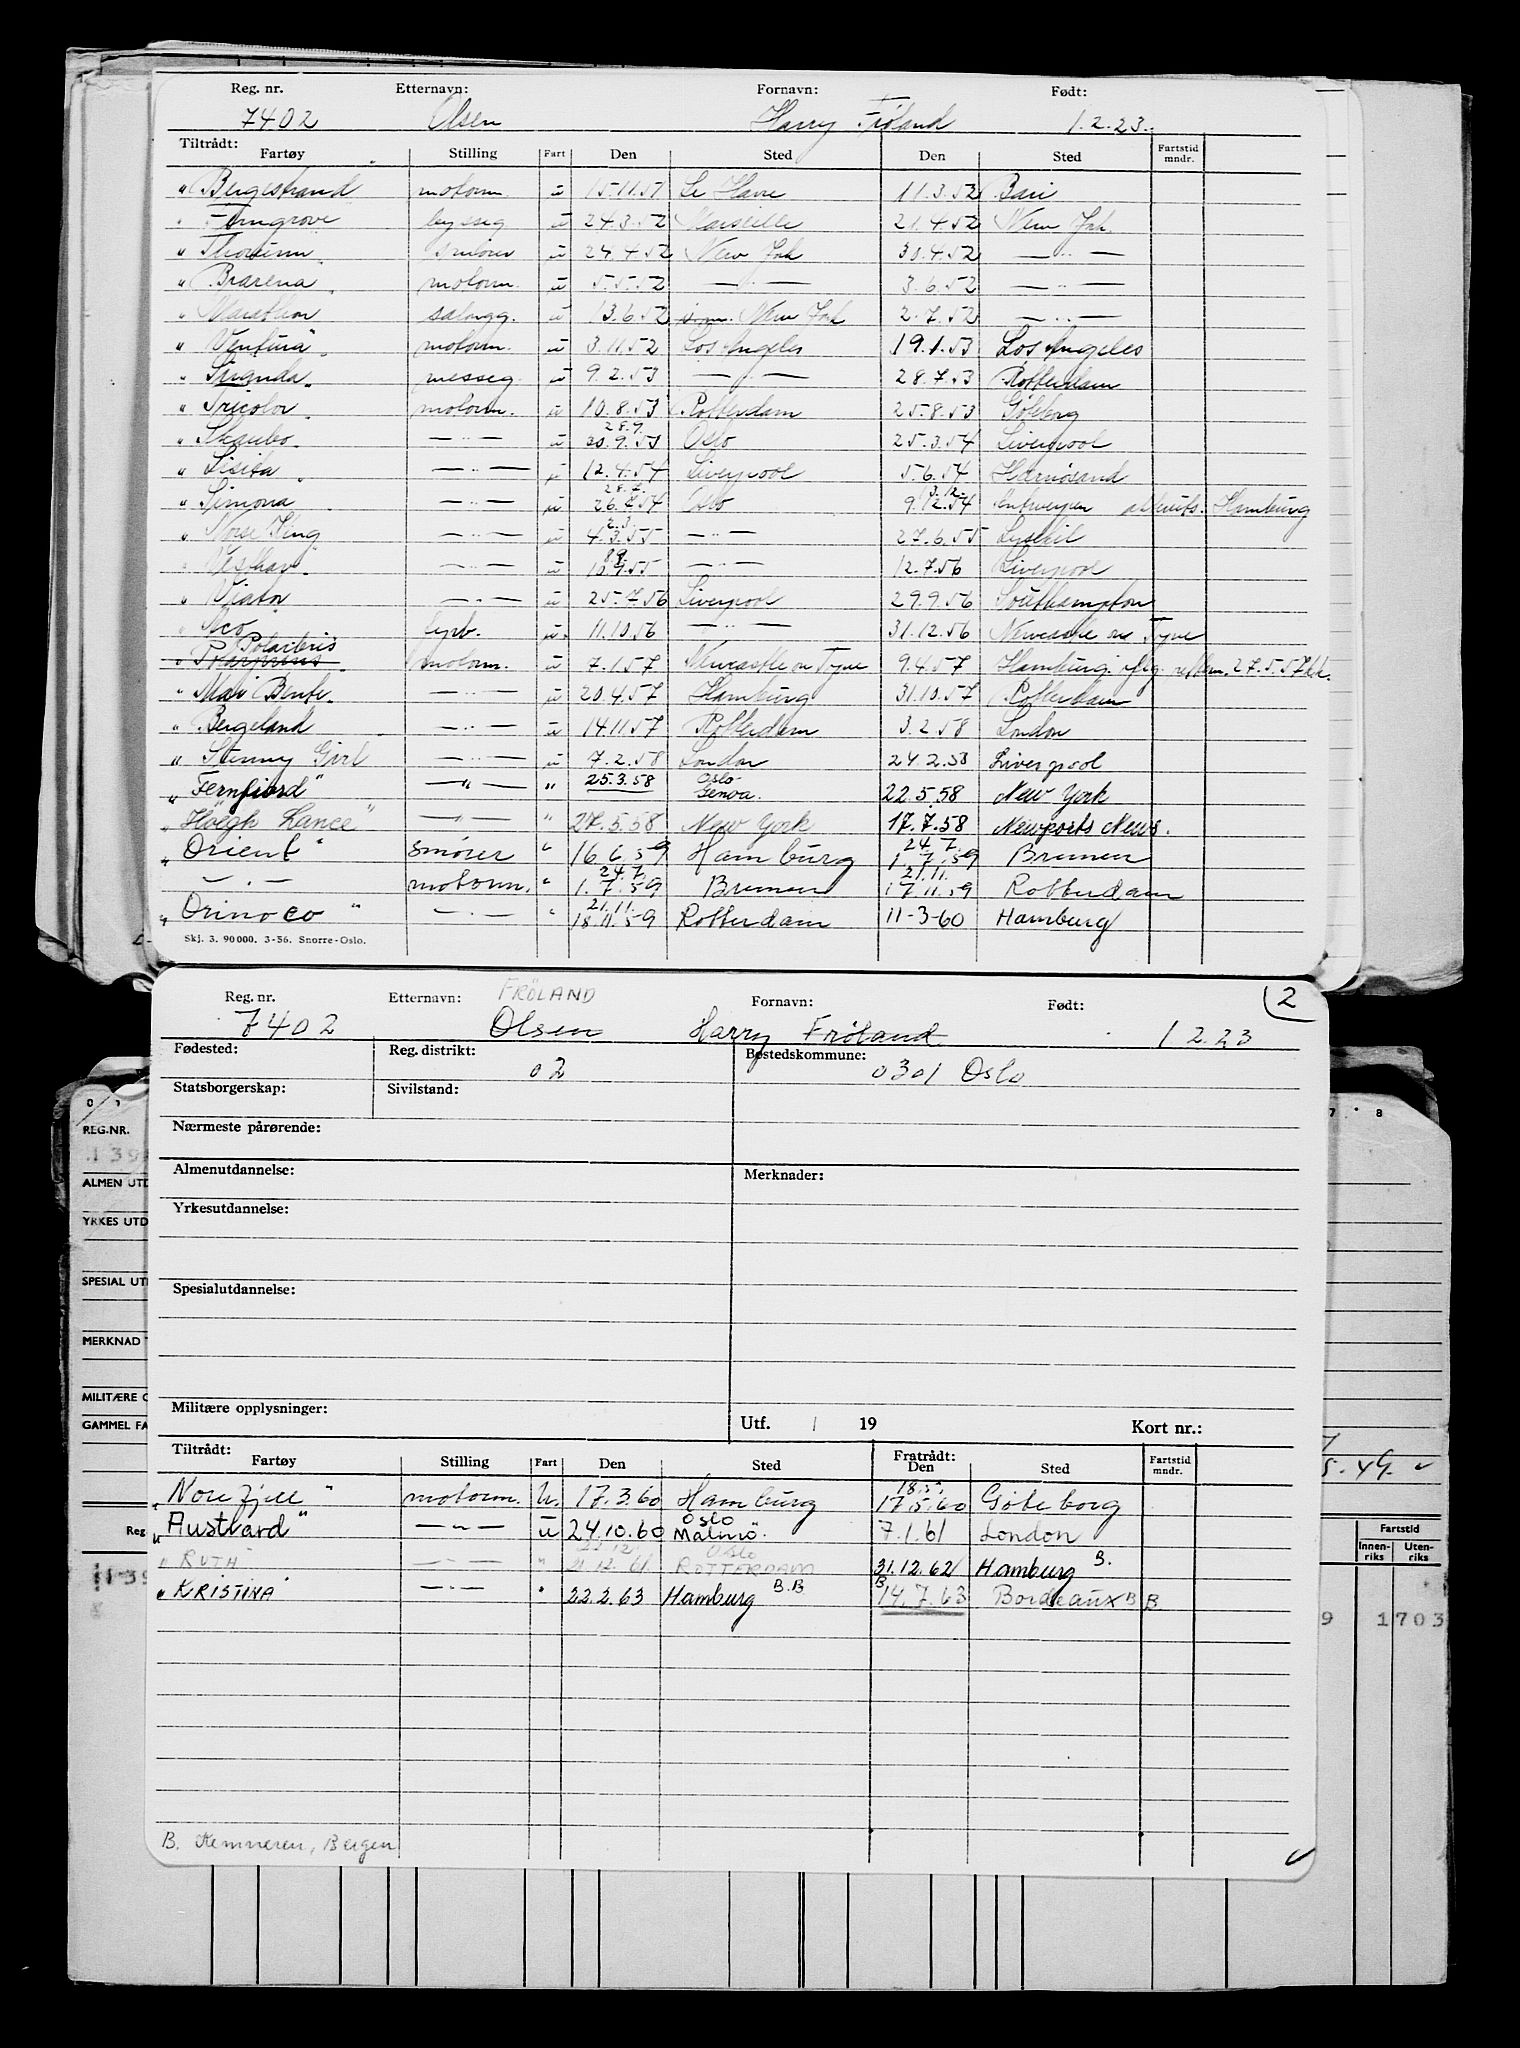 Reg. nr. Etternavn: Fornavn: Født:
7402 Olsen Harry Frøland 1.2.23.
Tiltrådt: Fartstid
Fartøy Stilling Fart Den Sted Den Sted mndr.
" Bergestrand " motorm. u 15.11.51 Le Havre 11.3.52 Bari
" Ferngrove u 24.3.52 Marseille 21.4.52 New York.
" Thorsinn smører u 24.4.52 New York 30.4.52 — " —
" Brarena motorm. u 5.5.52 — " — 3.6.52 — " —
" Marathon salongg. u 13.6.52 New York 2.7.52 — " —
" Ventura " motorm. u 3.11.52 Los Angeles 19.1.53 Los Angeles
" Strinda " messeg. u 9.2.53 — " — 28.7.53 Rotterdam
" Tricolor " motorm. u 10.8.53 Rotterdam 25.8.53 Gøteborg
28.9.
" Skaubo " — " — u 30.9.53 Oslo 25.3.54 Liverpool
" Sisita " — " — u 12.4.54 Liverpool 5.6.54 Hernøsand
28.7. 3.12.
" Simona " — " — u 26.7.54 Oslo 9.12.54 Antwerpen Hamburg
2.3.
" Norse King " — " — u 4.3.55 — " — 27.6.55 Lysekil
8.9.
" Vesthav " — " — u 10.9.55 — " — 12.7.56 Liverpool
" Viator — " — u 25.7.56 Liverpool 29.9.56 Southampton
" Aco u. 11.10.56 — " — 31.12.56 Newcastle on Tyne
Polarbris
" Polarprins motorm. u 7.1.57 Newcastle on Tyne 9.4.57 Hamburg. 27.5.57
" Mari Bente " — " — u 20.4.57 Hamburg 31.10.57 Rotterdam
" Bergeland — " — u 14.11.57 Rotterdam 3.2.58 London
" Stenny Girl — " — u 7.2.58 London 24.2.58 Liverpool
Oslo
" Fernfiord " — " — " 25.3.58 Genoa. 22.5.58 New York
" Höegh Lance " — " — " 27.5.58 New York 17.7.58 Newports News.
24.7.
" Orient " smører " 16.6.59 Hamburg 1.7.59 Bremen
24.7. 21.11.
— " — motorm. " 1.7.59 Bremen 17.11.59 Rotterdam
21.11.
" Orinoco " — " — " 18.11.59 Rotterdam 11-3-60 Hamburg
Skj. 3. 90000. 3-56. Snorre-Oslo.
FRÖLAND 2
Reg. nr. Etternavn: Fornavn: Født:
7402 Olsen Harry Frøland 1.2.23
Fødested: Reg. distrikt: Bostedskommune:
02 0301 Oslo
Statsborgerskap: Sivilstand:
Nærmeste pårørende:
Almenutdannelse: Merknader:
Yrkesutdannelse:
Spesialutdannelse:
Militære opplysninger: Utf. / 19 Kort nr.:
Tiltrådt: Fratrådt: Fartstid
Fartøy Stilling Fart Den Sted Den Sted mndr.
18.5.
" Norefjell " motorm. U. 17.3.60 Hamburg 17.5.60 Göteborg
Oslo
" Austvard " — " — U 24.10.60 Malmö. 7.1.61 London
22.12. Oslo
" RUTH " — " — " 21.12.61 ROTTERDAM 31.12.62 Hamburg B.
" KRISTINA " — " — " 22.2.63 Hamburg B.B B 14.7.63 Bordeaux B B
B. Kemneren, Bergen
REG.NR.
ALMEN UTD
YRKES UTD
SPESIAL UT
MERKNAD
MILITÆRE O
GAMMEL FA
Reg
7 8
5.49.
Fartstid
Innenriks Utenriks
9 1703